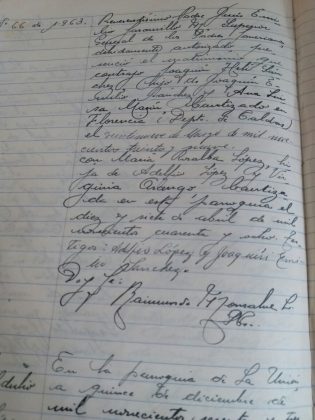 66 de 1963.
Reverendísimo Padre Jesús Emi-
lio Jaramillo M. Superior
General de
debidamente autorizado pre-
senció el matrimonio que
contrajo Joaquín
chez, hijo de Joaquín E-
milio Sánchez y Ana Lui-
sa Marín, bautizado en
Florencia (Dept. de Caldas)
el veintinueve de Marzo de mil nove-
cientos treinta y nueve.
con María Rosalba López, hi-
ja de Adolfo López y Vir-
ginia Orango bautiza-
da en esta parroquia el
diez y siete de abril de mil
novecientos cuarenta y ocho. Tes-
tigos: Adolfo López y Joaquín Emi-
lio Sánchez.
Doy fe:
Raimundo Monsalve L.
Pbro.
En la parroquia de La Unión
a quince de diciembre de
mil novecientos sesenta y tres